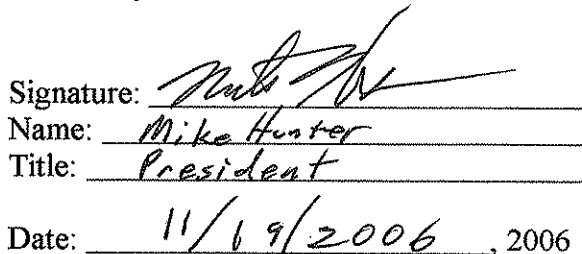 Signature:
Name: Mike Hunter
Title: President
Date: 11/19/2006, 2006